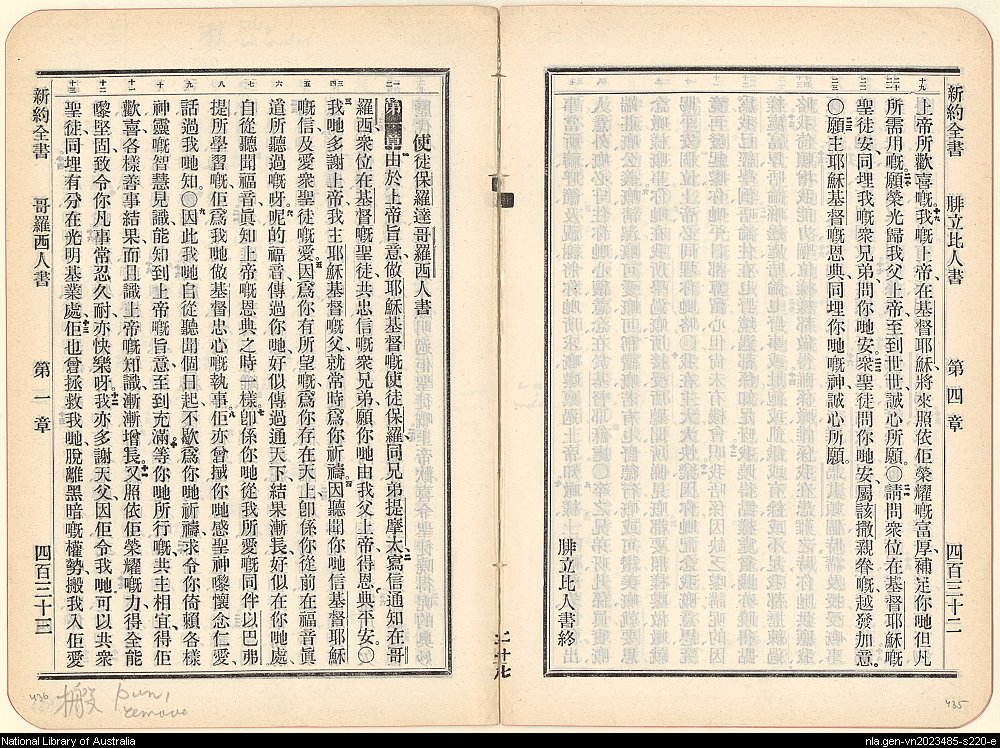 新約全書　腓立比人書　第四章　四百三十二
上帝所歡喜嘅、我嘅上帝在基督耶穌將來照依佢榮耀嘅富厚、補足你哋但凡
所需用嘅、願榮光歸我父上帝、至到世世、誠心所願。○請問衆位在基督耶穌嘅
聖徒安、同埋我嘅衆兄弟問你哋安、衆聖徒問你哋安、屬該撒親眷嘅越發加意。
○願主耶穌基督嘅恩典、同埋你哋嘅神、誠心所願。
腓立比人書終
使徒保羅達哥羅西人書
第一章 由於上帝旨意、做耶穌基督嘅使徒保羅、同兄弟提摩太、寫信通知在哥
羅西衆位在基督嘅聖徒、共忠信嘅衆兄弟、願你哋由我父上帝得恩典平安、○
我哋多謝上帝我主耶穌基督嘅父、就常時爲你祈禱、因聽聞你哋信基督耶穌
嘅信、及愛衆聖徒嘅愛、因爲你有所望嘅、爲你存在天上、即係你從前在福音眞
道所聽過嘅呀、呢的福音、傳過你哋、好似傳過通天下、結果漸長、好似在你哋處
自從聽聞福音、眞知上帝嘅恩典之時一樣、即係你哋從我所愛嘅同伴以巴弗
提所學習嘅、佢爲我哋做基督忠心嘅執事、佢亦曾搣你哋感聖神嚟懷念仁愛、
話過我哋知。○因此我哋自從聽聞個日起、不歇爲你哋祈禱、求令你倚賴各樣
神靈嘅智慧見識、能知到上帝嘅旨意、至到充滿、等你哋所行嘅、共主相宜、得佢
歡喜、各樣善事結果、而且識上帝嘅知識、漸漸增長、又照依佢榮耀嘅力、得全能
嚟堅固、致令你凡事常忍久耐、亦快樂呀、我亦多謝天父、因佢令我哋可以共衆
聖徒同埋有分、在光明基業處、佢也曾拯救我哋、脫離黑暗嘅權勢、搬我入佢愛
新約全書　哥羅西人書　第一章　四百三十三
436
搬 pun,
remove
435
二十九
National Library of Australia
nla.gen-vn2023485-s220-e